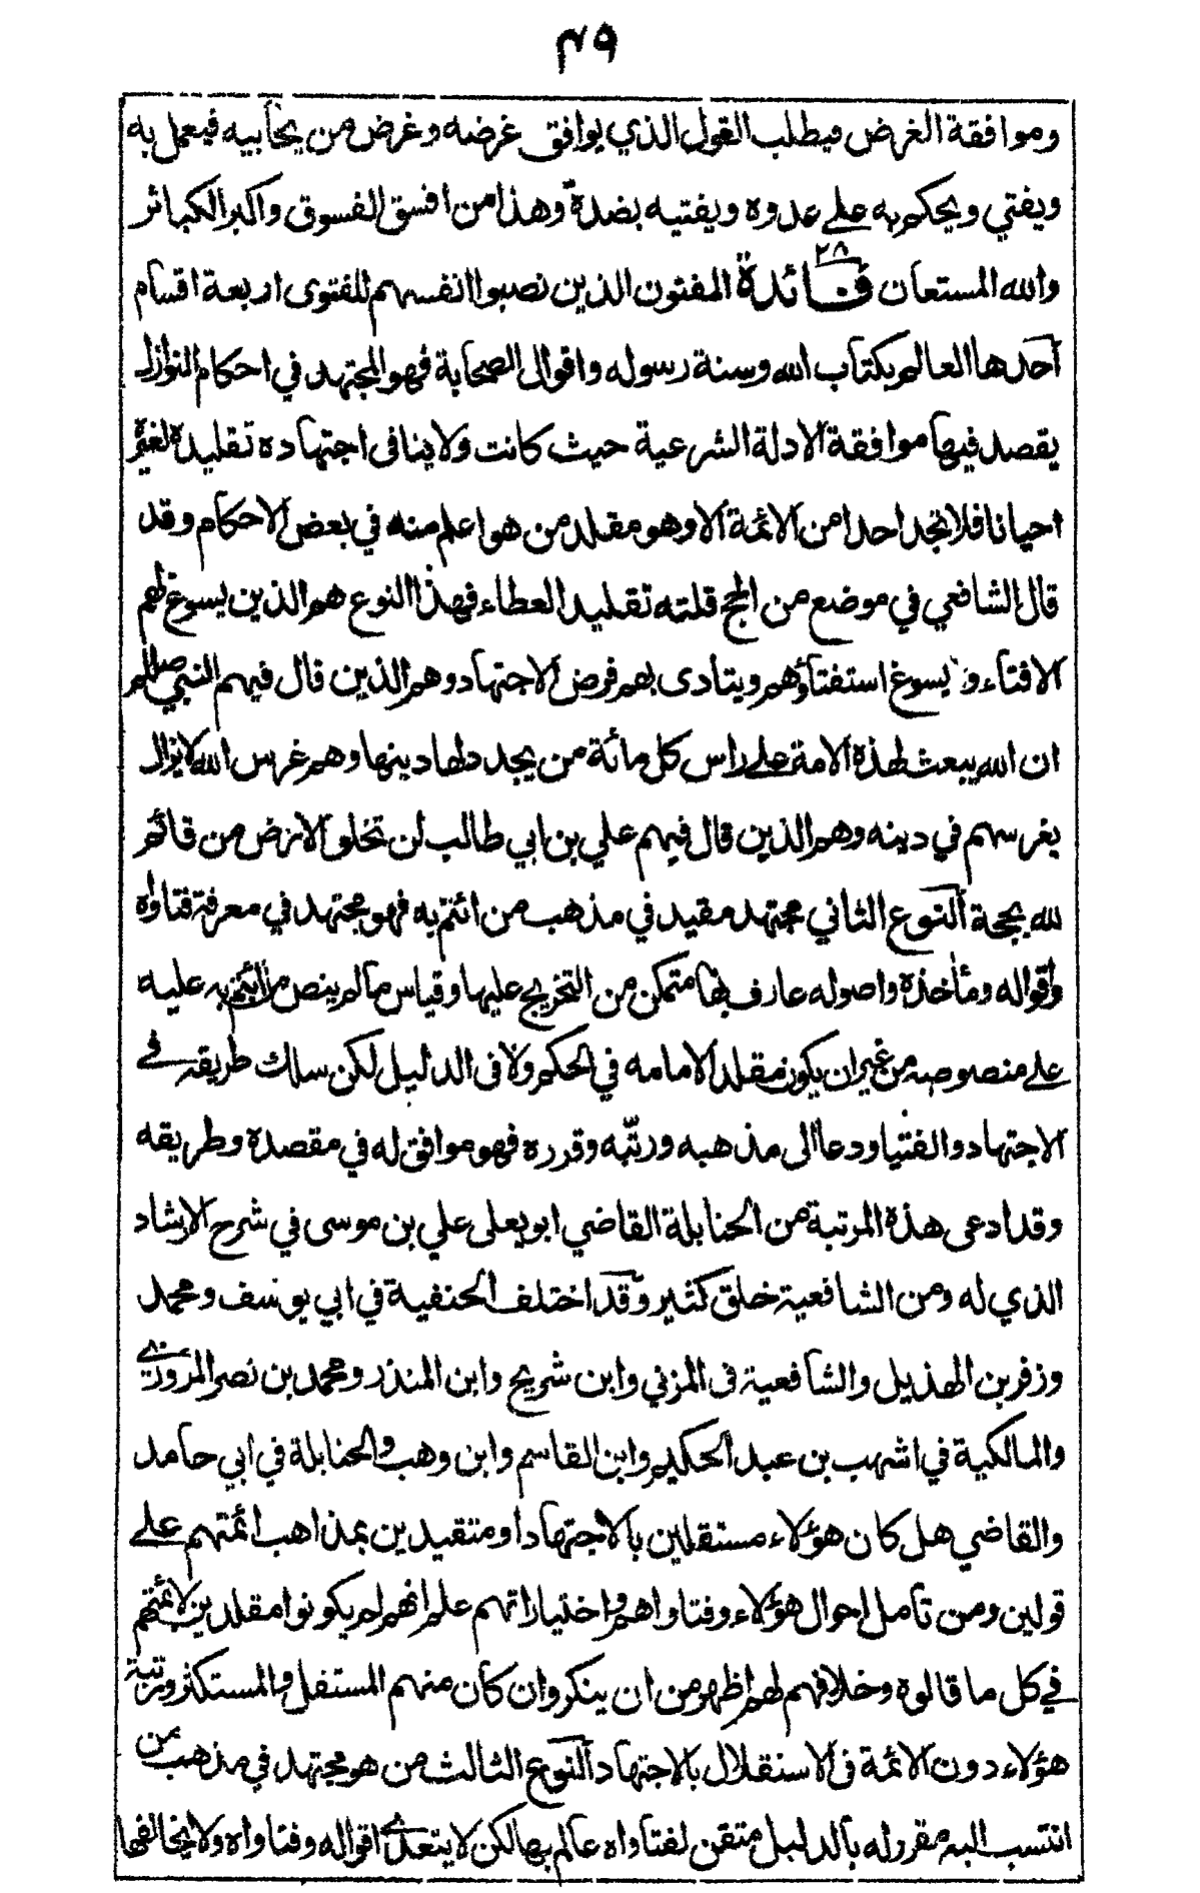 ٤٩
وموافقة الغرض فيطلب القول الذي يوافق غرضه وغرض من يحابيه فيعمل به
ويفتي ويحكم به على عدوه ويفتيه بضدة وهذا من افسق الفسوق واكبر الكبائر
والله المستعان فائدة ٢٨ المفتون الذين نصبوا انفسهم للفتوى اربعة اقسام
احدها العالم بكتاب الله وسنة رسوله واقوال الصحابة فهو المجتهد في احكام النوازل
يقصد فيها موافقة الادلة الشرعية حيث كانت ولا ينافى اجتهاده تقليدة لغيرة
احيانا فلا تجد احدا من الائمة الا وهو مقلد من هو اعلم منه في بعض الاحكام وقد
قال الشافعي في موضع من الحج قلته تقليدا لعطاء فهذا النوع هم الذين يسوغ لهم
الافتاء و يسوغ استفتاؤهم ويتادى بهم فرض الاجتهاد وهم الذين قال فيهم النبي صلعم
ان الله يبعث لهذة الامة على راس كل مائة من يجدد لها دينها وهم غرس الله لا يزال
يغرسهم في دينه وهم الذين قال فيهم علي بن ابي طالب لن تخلو الارض من قائم
لله بحجة النوع الثاني مجتهد مقيد في مذهب من ائتم به فهو مجتهد في معرفة فتاواه
واقواله ومأخذة واصوله عارف بها متمكن من التخريج عليها وقياس مالم ينص من ائتم به عليه
على منصوصه من غير ان يكون مقلدا لامامه في الحكم ولا فى الدليل لكن سلك طريقه في
الاجتهاد والفتيا ودعا الى مذهبه ورتبه وقرره فهو موافق له في مقصدة وطريقه
وقد ادعى هذة المرتبة من الحنابلة القاضي ابو يعلى علي بن موسى في شرح الارشاد
الذي له ومن الشافعية خلق كثير وقد اختلف الحنفية في ابي يوسف ومحمد
وزفر بن الهذيل والشافعية فى المزني وابن شريح وابن المنذر ومحمد بن نصر المروزي
والمالكية في اشهب بن عبد الحكيم وابن القاسم وابن وهب والحنابلة في ابي حامد
والقاضي هل كان هؤلاء مستقلين بالاجتهاد او متقيدين بمذاهب ائمتهم على
قولين ومن تأمل احوال هؤلاء وفتاواهم واختياراتهم علم انهم لم يكونوا مقلدين لائمتهم
في كل ما قالوة وخلافهم لهم اظهر من ان ينكر وان كان منهم المستقل والمستكثر ورتبة
هؤلاء دون الائمة فى الاستقلال بالاجتهاد النوع الثالث من هو مجتهد في مذهب من
انتسب اليه مقرر له بالدليل متقن لفتاواه عالم بها لكن لا يتعدى اقواله وفتاواه ولا يخالفها